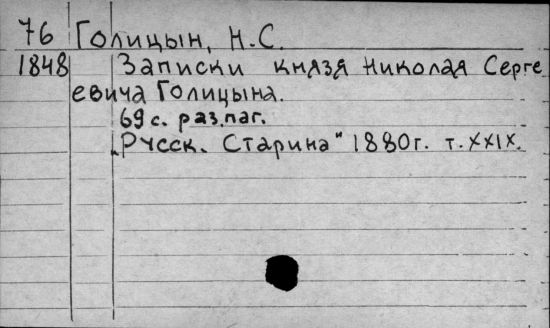 76 Голицын, Н.С.
1848 Записки князя Николая Серге
евича Голицына.
69 с. раз.паг.
„Русск. Старина" 1880г. т. XXIX.